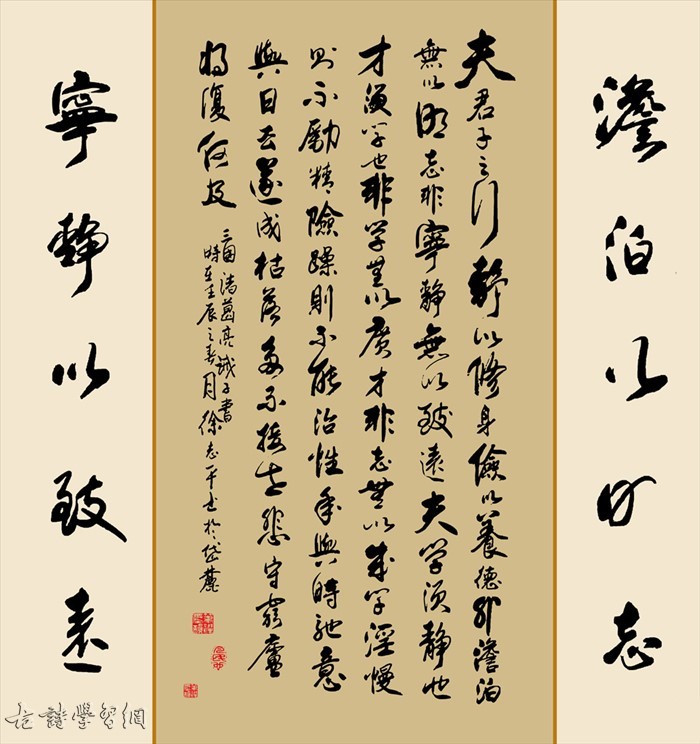 澹泊以明志
夫君子之行靜以修身儉以養德非澹泊
無以明志非寧靜無以致遠夫学須靜也
才須学也非学無以廣才非志無以成学淫慢
则不勵精險躁則不能治性年與時馳意
與日去遂成枯落多不接世悲守窮廬
將復何及
三國諸葛亮誡子書
時在壬辰之春月徐志平書於岱麓
寧靜以致遠